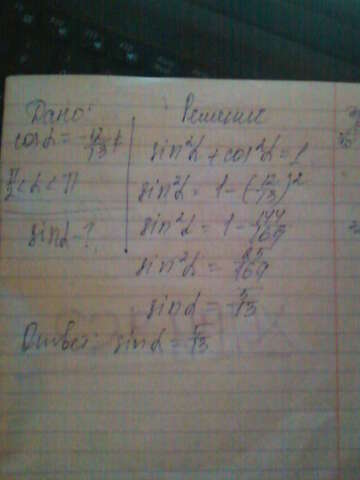 Дано:
cosα = -12/13
π/2 < α < π
sinα - ?
Решение
sin²α + cos²α = 1
sin²α = 1 - (12/13)²
sin²α = 1 - 144/169
sin²α = 25/169
sinα 5/13
Ответ: sinα = 5/13